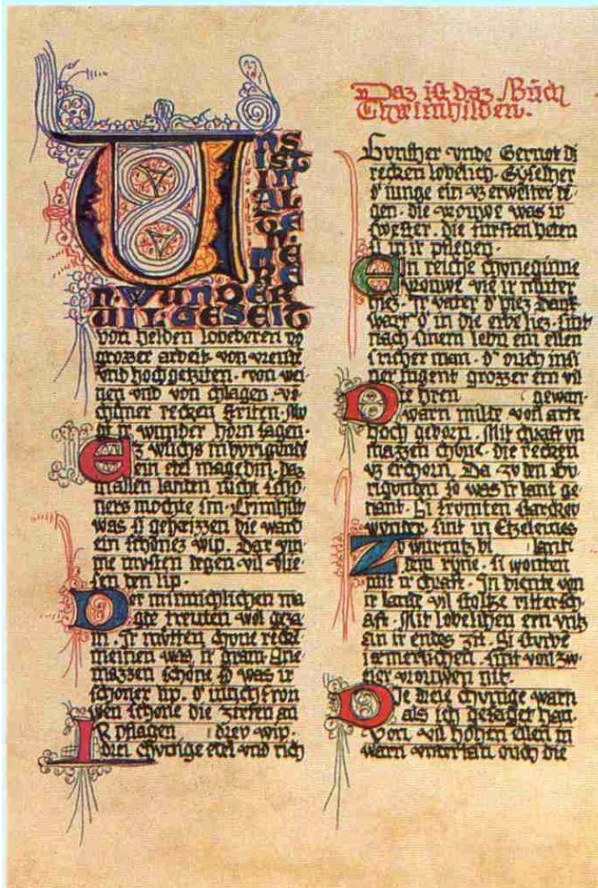 UNS
IST
IN
AL
TEN
ME
RE
N·WUNDER
UIL·GESEIT
von helden lobeberen vō
grozzer arbeit· von vreude
vnd hochgeziten· von wei
nen vnd von chlagen· vō
chuner recken striten· Mv
gt ir wunder horn sagen·
Ez wuchs in byrigunde
ein edel magedin· daz
in allen landen nicht scho
ners mochte sin· Crimhilt
was si geheizzen die ward
ein schones wip· Dar vm
me mvsten degen· vil vlie
sen den lip·
Der minnichlichen ma
gde treuten wol geza
m· Ir mvtten chune recken
niemen was ir gram· Ane
mazzen schone so was ir
schoner lip· d' iuncfrow
wen schone die zirten an
IR pflagen driev wip·
driei chvnige edel vnd rich
Daz ist daz Bůch
Chreimhilden·
Gvnther vnde Gernot di
recken lobelich· Gyselher
d' iunge ein vz erwelter de
gen· die vrouwe was ir
swester· die fursten heten
si in ir pflegen·
Ein reiche chvneginne
vrouwe vte ir muter
hiez· Ir vater d' hiez Dank
wart d' in die erbe liez· sint
nach sinem lebn ein ellen
s richer man· d' ouch in si
ner iugent grozzer ern vil
Die hren gewan·
warn milte von arte
hoch geborn· Mit chraft vn
mazzen chune· die recken
vz erchorn· Da zv den bv
rigunden so was ir lant ge
nant· Si fromten starckev
wonder· sint in Etzeleines
Zo wurmtz bi lant·
dem ryne· si wonten
mit ir chraft· In diente von
ir lande vil stoltze rittersch
aft· Mit lobelichen ern vntz
an ir endes zit· Si sturbe
iæmerlichen· sint von zw
eier vrouwen nit·
Die drie chvnige warn
als ich gesaget han·
Von vil hohen ellen in
warn vntertan ouch die